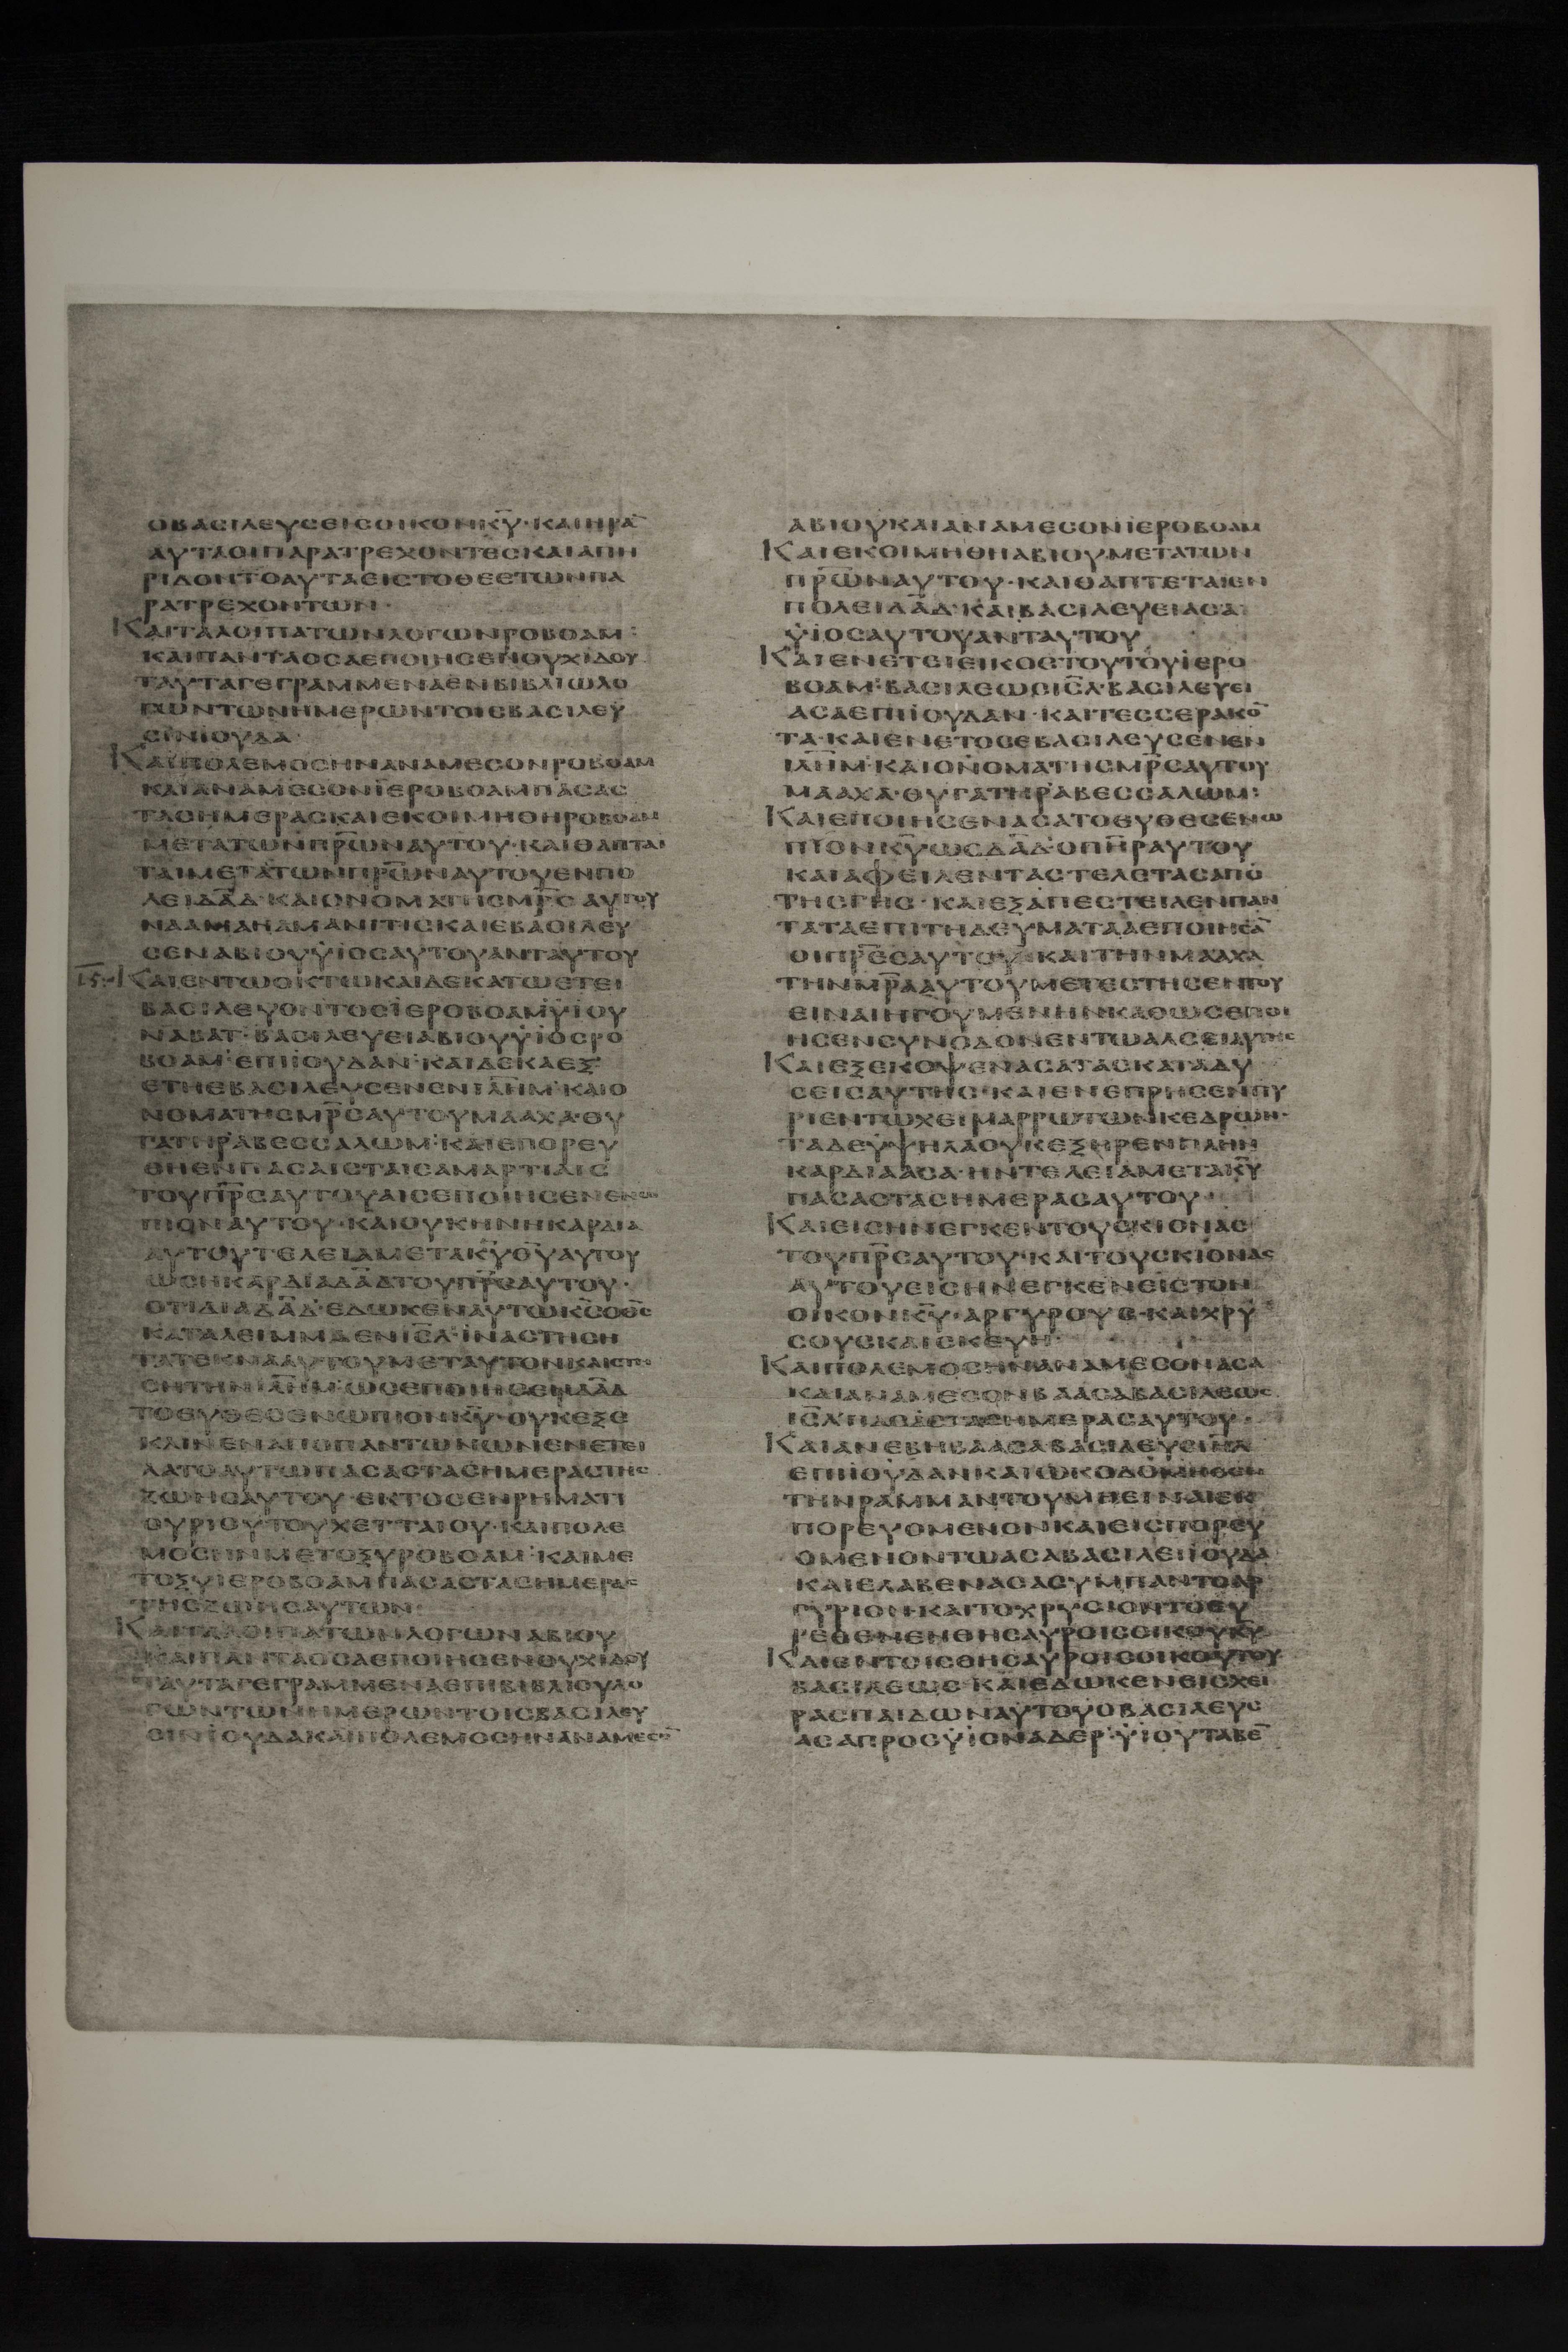 ΟΒΑCΙΛΕΥCΕΙCΟΙΚΟΝΚ̅Υ̅·ΚΑΙΗΡΑ̅
ΑΥΤΑΟΙΠΑΡΑΤΡΕΧΟΝΤΕCΚΑΙΑΠΗ
ΡΙΔΟΝΤΟΑΥΤΑΕΙCΤΟΘΕΕΤΩΝΠΑ
ΡΑΤΡΕΧΟΝΤΩΝ·
ΚΑΙΤΑΛΟΙΠΑΤΩΝΛΟΓΩΝΡΟΒΟΑΜ:
ΚΑΙΠΑΝΤΑΟCΑΕΠΟΙΗCΕΝΟΥΧΙΔΟΥ
ΤΑΥΤΑΓΕΓΡΑΜΜΕΝΑΕΝΒΙΒΛΙΩΛΟ
ΓΩΝΤΩΝΗΜΕΡΩΝΤΟΙCΒΑCΙΛΕΥ
CΙΝΪΟΥΔΑ·
ΚΑΙΠΟΛΕΜΟCΗΝΑΝΑΜΕCΟΝΡΟΒΟΑΜ
ΚΑΙΑΝΑΜΕCΟΝΪΕΡΟΒΟΑΜΠΑCΑC
ΤΑCΗΜΕΡΑCΚΑΙΕΚΟΙΜΗΘΗΡΟΒΟΑΜ
ΜΕΤΑΤΩΝΠΡ̅Ω̅ΝΑΥΤΟΥ·ΚΑΙΘΑΠΤΑΙ
ΤΑΙΜΕΤΑΤΩΝΠΡ̅Ω̅ΝΑΥΤΟΥΕΝΠΟ
ΛΕΙΔΑ̅Δ·ΚΑΙΟΝΟΜΑΤΗCΜΡ̅CΑΥΤΟΥ
ΝΑΑΜΑΗΑΜΑΝΙΤΙCΚΑΙΕΒΑCΙΛΕΥ
CΕΝΑΒΙΟΥΫΪΟCΑΥΤΟΥΑΝΤΑΥΤΟΥ
Ι̅Ϛ̅ ΚΑΙΕΝΤΩΟΚΤΩΚΑΙΔΕΚΑΤΩΕΤΕΙ
ΒΑCΙΛΕΥΟΝΤΟCΪΕΡΟΒΟΑΜΫΪΟΥ
ΝΑΒΑΤ·ΒΑCΙΛΕΥΕΙΑΒΙΟΥΫΪΟCΡΟ
ΒΟΑΜ·ΕΠΙΪΟΥΔΑΝ·ΚΑΙΔΕΚΑΕΞ
ΕΤΗΕΒΑCΙΛΕΥCΕΝΕΝΙΛ̅Η̅Μ·ΚΑΙΟ
ΝΟΜΑΤΗCΜΡ̅CΑΥΤΟΥΜΑΑΧΑ·ΘΥ
ΓΑΤΗΡΑΒΕCCΑΛΩΜ·ΚΑΙΕΠΟΡΕΥ
ΘΗΕΝΠΑCΑΙCΤΑΙCΑΜΑΡΤΙΑΙC
ΤΟΥΠΡ̅CΑΥΤΟΥΑΙCΕΠΟΙΗCΕΝΕΝΩ
ΠΙΟΝΑΥΤΟΥ·ΚΑΙΟΥΚΗΝΗΚΑΡΔΙΑ
ΑΥΤΟΥΤΕΛΕΙΑΜΕΤΑΚ̅Υ̅Θ̅Υ̅ΑΥΤΟΥ
ΩCΗΚΑΡΔΙΑΔΑ̅ΔΤΟΥΠΡ̅CΑΥΤΟΥ·
ΟΤΙΔΙΑΔΑ̅Δ·ΕΔΩΚΕΝΑΥΤΩΚ̅C̅ΟΘ̅C̅
ΚΑΤΑΛΕΙΜΜΑΕΝΙC̅Λ·ΪΝΑCΤΗCΗ
ΤΑΤΕΚΝΑΑΥΤΟΥΜΕΤΑΥΤΟΝΚΑΙCΤΗ
CΗΤΗΝΙΛ̅Η̅Μ·ΩCΕΠΟΙΗCΕΝΔΑ̅Δ
ΤΟΕΥΘΕCΕΝΩΠΙΟΝΚ̅Υ̅·ΟΥΚΕΞΕ
ΚΛΙΝΕΝΑΠΟΠΑΝΤΩΝΩΝΕΝΕΤΕΙ
ΛΑΤΟΑΥΤΩΠΑCΑCΤΑCΗΜΕΡΑCΤΗC
ΖΩΗCΑΥΤΟΥ·ΕΚΤΟCΕΝΡΗΜΑΤΙ
ΟΥΡΙΟΥΤΟΥΧΕΤΤΑΙΟΥ·ΚΑΙΠΟΛΕ
ΜΟCΗΝΜΕΤΟΞΥΡΟΒΟΑΜ·ΚΑΙΜΕ
ΤΟΞΥΪΕΡΟΒΟΑΜΠΑCΑCΤΑCΗΜΕΡΑC
ΤΗCΖΩΗCΑΥΤΩΝ·
ΚΑΙΤΑΛΟΙΠΑΤΩΝΛΟΓΩΝΑΒΙΟΥ
ΚΑΙΠΑΝΤΑΟCΑΕΠΟΙΗCΕΝΟΥΧΙΔΟΥ
ΤΑΥΤΑΓΕΓΡΑΜΜΕΝΑΕΠΙΒΙΒΛΙΟΥΛΟ
ΓΩΝΤΩΝΗΜΕΡΩΝΤΟΙCΒΑCΙΛΕΥ
CΙΝΪΟΥΔΑΚΑΙΠΟΛΕΜΟCΗΝΑΝΑΜΕCΟ̅
ΑΒΙΟΥΚΑΙΑΝΑΜΕCΟΝΪΕΡΟΒΟΑΜ
ΚΑΙΕΚΟΙΜΗΘΗΑΒΙΟΥΜΕΤΑΤΩΝ
ΠΡ̅Ω̅ΝΑΥΤΟΥ·ΚΑΙΘΑΠΤΕΤΑΙΕΝ
ΠΟΛΕΙΔΑ̅Δ·ΚΑΙΒΑCΙΛΕΥΕΙΑCΑ
ΫΪΟCΑΥΤΟΥΑΝΤΑΥΤΟΥ
ΚΑΙΕΝΕΤΕΙΕΙΚΟCΤΟΥΤΟΥΪΕΡΟ
ΒΟΑΜ·ΒΑCΙΛΕΩCΙC̅Λ·ΒΑCΙΛΕΥΕΙ
ΑCΑΕΠΙΪΟΥΔΑΝ·ΚΑΙΤΕCCΕΡΑΚΟ̅
ΤΑ·ΚΑΙΕΝΕΤΟCΕΒΑCΙΛΕΥCΕΝΕΝ
ΙΛ̅Η̅Μ·ΚΑΙΟΝΟΜΑΤΗCΜΡ̅CΑΥΤΟΥ
ΜΑΑΧΑ·ΘΥΓΑΤΗΡΑΒΕCCΑΛΩΜ:
ΚΑΙΕΠΟΙΗCΕΝΑCΑΤΟΕΥΘΕCΕΝΩ
ΠΙΟΝΚ̅Υ̅ΩCΔΑ̅Δ·ΟΠΗ̅ΡΑΥΤΟΥ
ΚΑΙΑΦΕΙΛΕΝΤΑCΤΕΛΕΤΑCΑΠΟ
ΤΗCΓΗC·ΚΑΙΕΞΑΠΕCΤΕΙΛΕΝΠΑΝ
ΤΑΤΑΕΠΙΤΗΔΕΥΜΑΤΑΑΕΠΟΙΗCΑ̅
ΟΙΠΡ̅Ε̅CΑΥΤΟΥ·ΚΑΙΤΗΝΜΑΑΧΑ
ΤΗΝΜΡ̅ΑΑΥΤΟΥΜΕΤΕCΤΗCΕΝΤΟΥ
ΕΙΝΑΙΗΓΟΥΜΕΝΗΝΚΑΘΩCΕΠΟΙ
ΗCΕΝCΥΝΟΔΟΝΕΝΤΩΑΛCΕΙΑΥΤΗC
ΚΑΙΕΞΕΚΟΨΕΝΑCΑΤΑCΚΑΤΑΔΥ
CΕΙCΑΥΤΗC·ΚΑΙΕΝΕΠΡΗCΕΝΠΥ
ΡΙΕΝΤΩΧΕΙΜΑΡΡΩΤΩΝΚΕΔΡΩΝ·
ΤΑΔΕΫΨΗΛΑΟΥΚΕΞΗΡΕΝΠΛΗΝ
ΚΑΡΔΙΑΑCΑ·ΗΝΤΕΛΕΙΑΜΕΤΑΚ̅Υ̅
ΠΑCΑCΤΑCΗΜΕΡΑCΑΥΤΟΥ·
ΚΑΙΕΙCΗΝΕΓΚΕΝΤΟΥCΚΙΟΝΑC
ΤΟΥΠΡ̅CΑΥΤΟΥ·ΚΑΙΤΟΥCΚΙΟΝΑC
ΑΥΤΟΥΕΙCΗΝΕΓΚΕΝΕΙCΤΟΝ
ΟΙΚΟΝΚ̅Υ̅·ΑΡΓΥΡΟΥC·ΚΑΙΧΡΥ
CΟΥCΚΑΙCΚΕΥΗ·
ΚΑΙΠΟΛΕΜΟCΗΝΑΝΑΜΕCΟΝΑCΑ
ΚΑΙΑΝΑΜΕCΟΝΒΑΑCΑΒΑCΙΛΕΩC
ΙC̅Λ·ΠΑCΑCΤΑCΗΜΕΡΑCΑΥΤΟΥ·
ΚΑΙΑΝΕΒΗΒΑΑCΑΒΑCΙΛΕΥCΙΗ̅Λ
ΕΠΙΪΟΥΔΑΝΚΑΙΩΚΟΔΟΜΗCΕΝ
ΤΗΝΡΑΜΜΑΝΤΟΥΜΗΕΙΝΑΙΕΚ
ΠΟΡΕΥΟΜΕΝΟΝΚΑΙΕΙCΠΟΡΕΥ
ΟΜΕΝΟΝΤΩΑCΑΒΑCΙΛΕΙΪΟΥΔΑ
ΚΑΙΕΛΑΒΕΝΑCΑCΥΜΠΑΝΤΟΑΡ
ΓΥΡΙΟΝ·ΚΑΙΤΟΧΡΥCΙΟΝΤΟΕΥ
ΡΕΘΕΝΕΝΘΗCΑΥΡΟΙCΟΙΚΟΥΚ̅Υ̅
ΚΑΙΕΝΤΟΙCΘΗCΑΥΡΟΙCΟΙΚΟΥΤΟΥ
ΒΑCΙΛΕΩC·ΚΑΙΕΔΩΚΕΝΕΙCΧΕΙ
ΡΑCΠΑΙΔΩΝΑΥΤΟΥΟΒΑCΙΛΕΥC
ΑCΑΠΡΟCΫΪΟΝΑΔΕΡ·ΫΪΟΥΤΑΒΕ̅